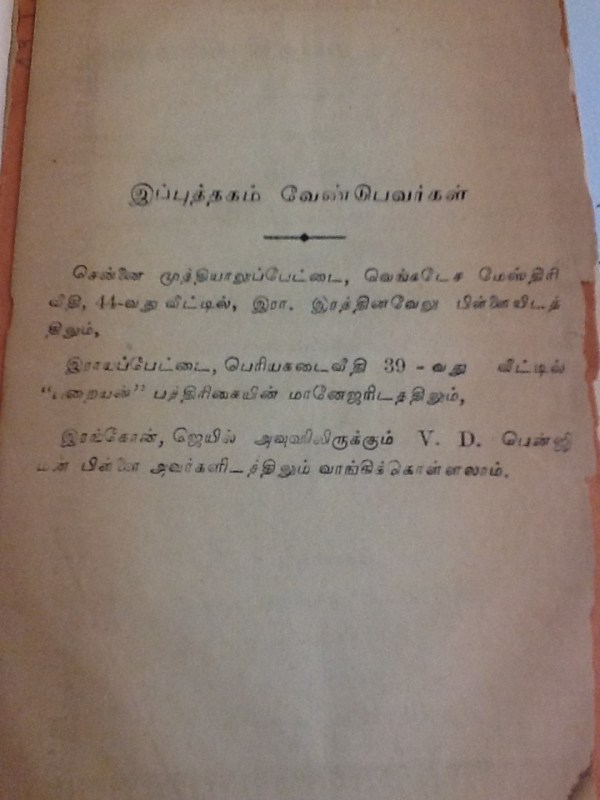 இப்புத்தகம் வேண்டுபவர்கள்
சென்னை முத்தியாலுப்பேட்டை, வெங்கடேச மேஸ்திரி
வீதி, 44-வது வீட்டில், இரா. இரத்தினவேலு பிள்ளையிடத்
திலும்,
இராயப்பேட்டை, பெரியகடைவீதி 39 - வது வீட்டில்
“பறையன்” பத்திரிகையின் மானேஜரிடத்திலும்,
இரங்கோன், ஜெயில் அவுஸிலிருக்கும் V. D. பென்ஜி
மன் பிள்ளை அவர்களிடத்திலும் வாங்கிக்கொள்ளலாம்.